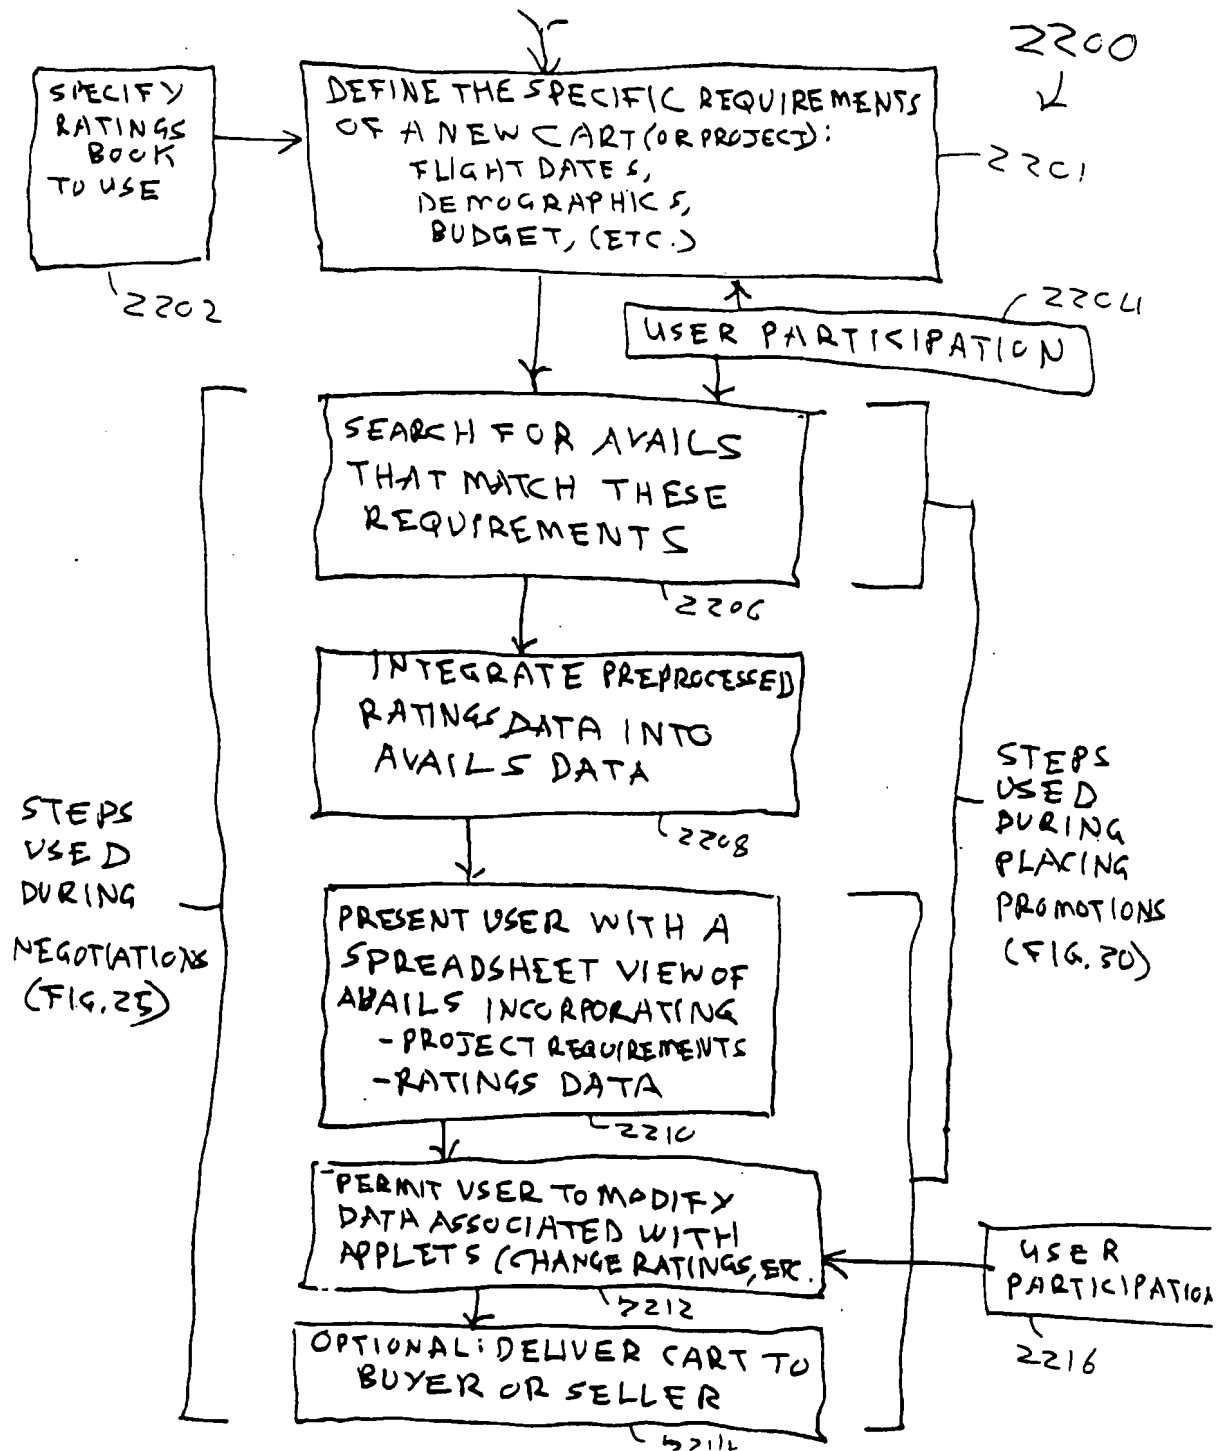 2200
SPECIFY
RATINGS
BOOK
TO USE
2202
DEFINE THE SPECIFIC REQUIREMENTS
OF A NEW CART (OR PROJECT):
FLIGHT DATES,
DEMOGRAPHICS,
BUDGET, (ETC.)
2201
2204
USER PARTICIPATION
SEARCH FOR AVAILS
THAT MATCH THESE
REQUIREMENTS
2206
INTEGRATE PREPROCESSED
RATINGS DATA INTO
AVAILS DATA
2208
STEPS
USED
DURING
NEGOTIATIONS
(FIG. 25)
STEPS
USED
DURING
PLACING
PROMOTIONS
(FIG. 30)
PRESENT USER WITH A
SPREADSHEET VIEW OF
AVAILS INCORPORATING
- PROJECT REQUIREMENTS
- RATINGS DATA
2210
PERMIT USER TO MODIFY
DATA ASSOCIATED WITH
APPLETS (CHANGE RATINGS, ETC.
2212
USER
PARTICIPATION
2216
OPTIONAL: DELIVER CART TO
BUYER OR SELLER